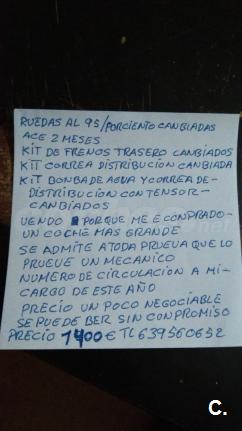 RUEDAS AL 95/PORCIENTO CANBIADAS
ACE 2 MESES
KIT DE FRENOS TRASERO CANBIADOS
KIT CORREA DISTRIBUCION CANBIADA
KIT BONBA DE AGUA Y CORREA DE-
DISTRIBUCION CON TENSOR-
CANBIADOS
VENDO PORQUE ME E CONPRADO-
UN COCHE MAS GRANDE
SE ADMITE A TODA PRUEVA QUE LO
PRUEVE UN MECANICO
NUMERO DE CIRCULACION A MI-
CARGO DE ESTE AÑO
PRECIO UN POCO NEGOCIABLE
SE PUEDE BER SIN CONPROMISO
PRECIO 1400 € TL 639560652
C.